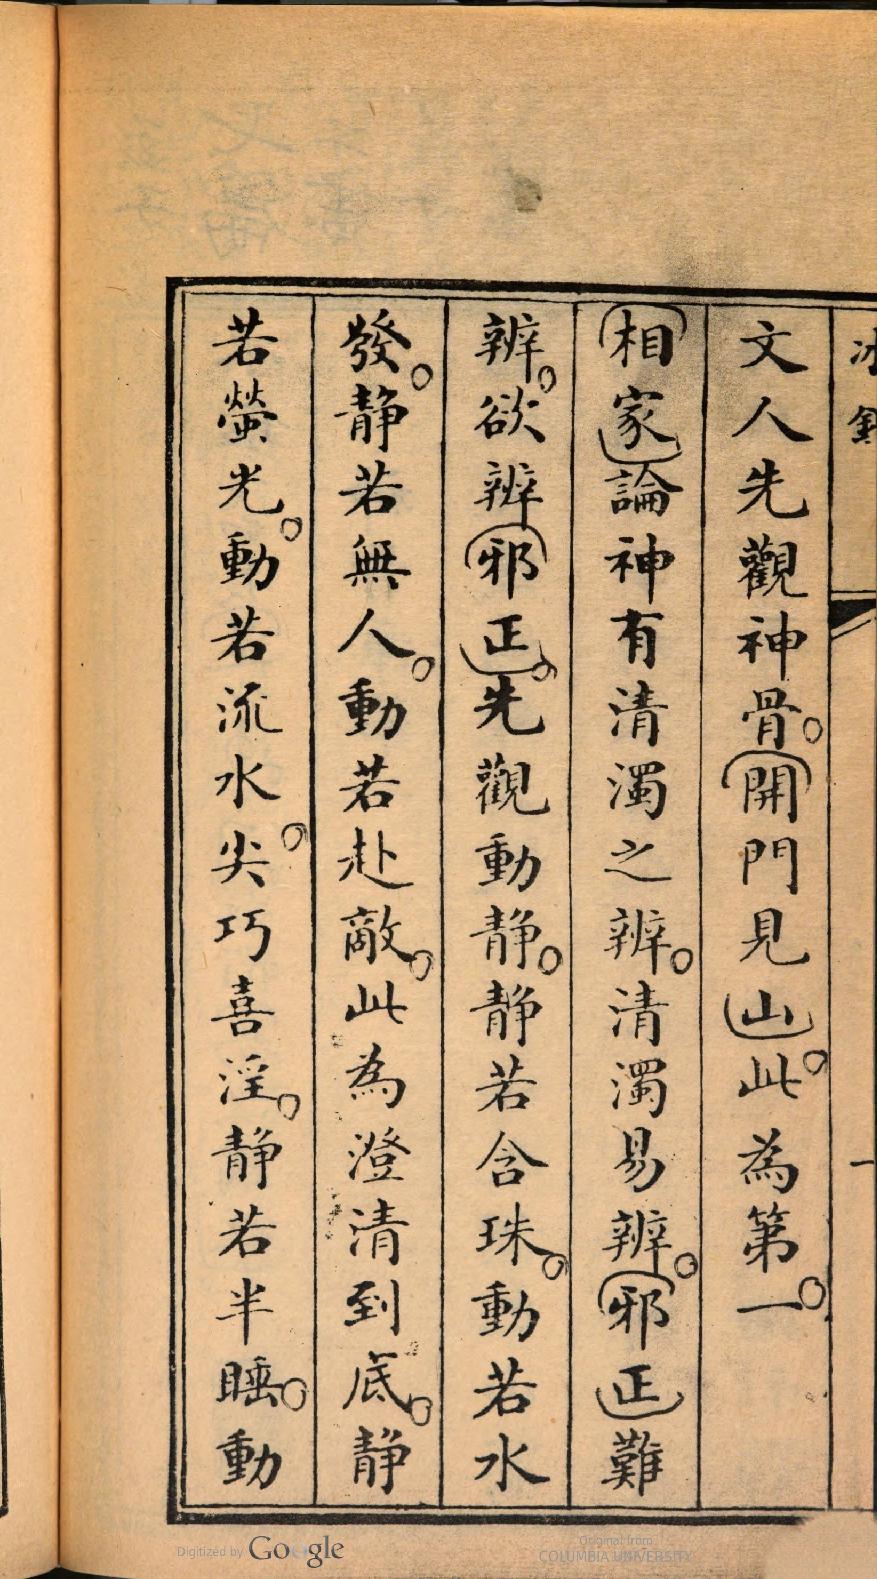 冰鑑
一
文人先觀神骨開門見山此為第一
相家論神有清濁之辨清濁易辨邪正難
辨欲辨邪正先觀動静静若含珠動若水
發静若無人動若赴敵此為澄清到底静
若螢光動若流水尖巧喜淫静若半睡動
Digitized by Google
Original from
COLUMBIA UNIVERSITY